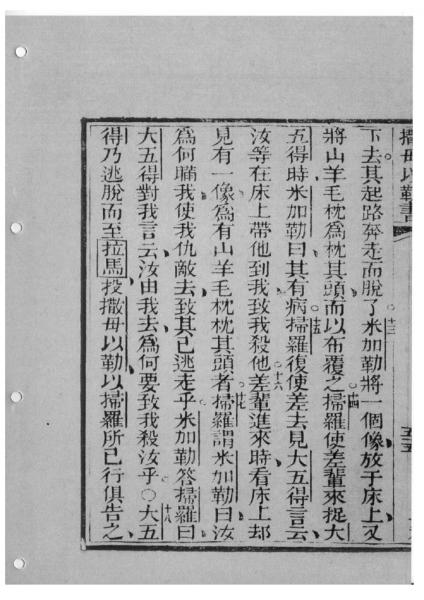 撒毋以勒書 五五
下去其起路奔走而脫了○十三米加勒將一個像放于床上又
將山羊毛枕為枕其頭而以布覆之○十四掃羅使差輩來捉大
五得時米加勒曰其有病○十五掃羅復使差去見大五得言云
汝等在床上帶他到我致我殺他○十六差輩進來時看床上却
見有一像為有山羊毛枕枕其頭者○十七掃羅謂米加勒曰汝
為何瞞我使我仇敵去致其已逃走乎米加勒答掃羅曰
大五得對我言云汝由我去為何要致我殺汝乎○十八大五
得乃逃脫而至拉馬投撒毋以勒以掃羅所已行俱告之